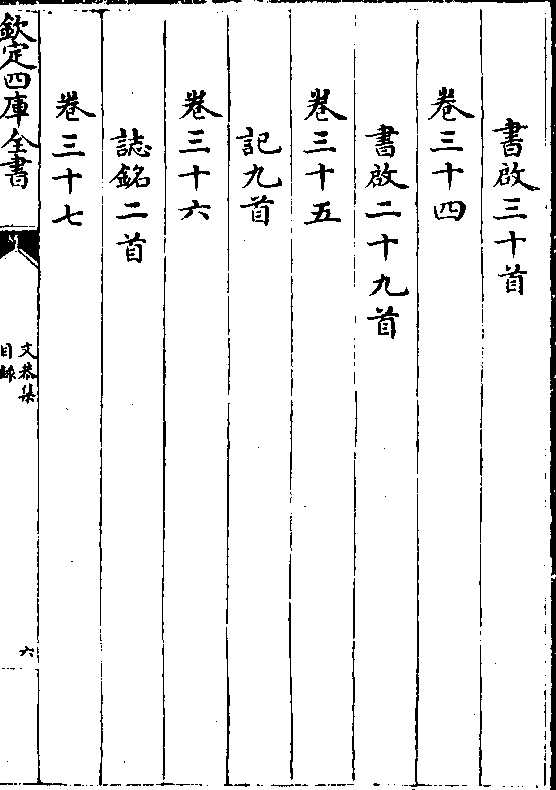 書啟三十首
卷三十四
書啟二十九首
卷三十五
記九首
卷三十六
誌銘二首
卷三十七
欽定四庫全書
文恭集
目錄
六